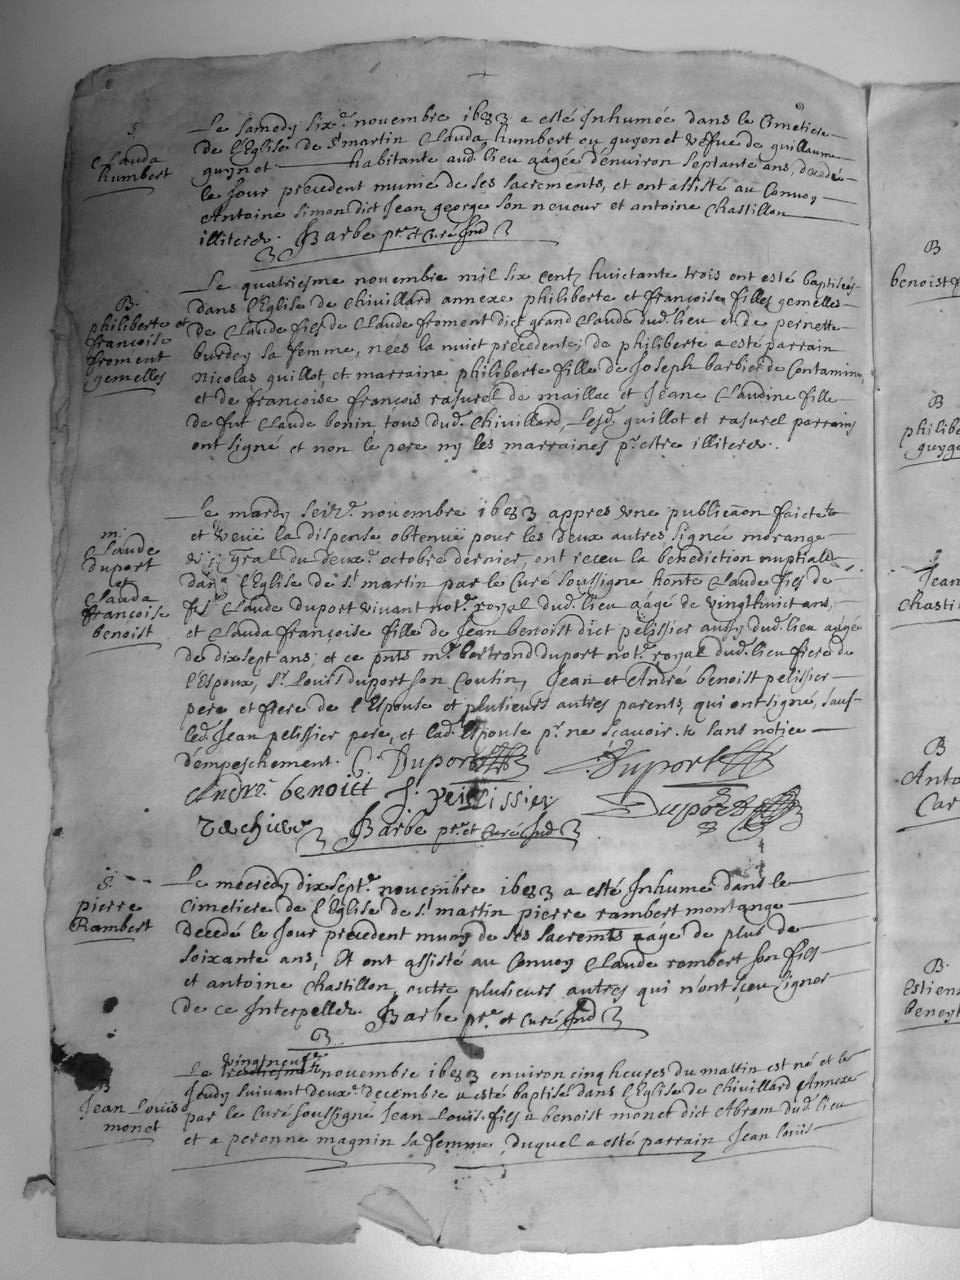 S.
Clauda
humbert
Le samedy six.e novembre 1683 a esté Inhumée dans le Cimetiere
de l'Eglise de st martin Clauda humbert ou guyonet vefve de guillaume
guynot habitante aud. lieu aagée d'environ septante ans, decedée
le Jour precedent munie de ses sacrements, et ont assisté au Convoy
Antoine simon dict Jean george son neveur et antoine Chastillon
illiteres. Barbe ptre et Curé Ind
B.
philiberte et
francoise
froment
gemelles
Le quatriesme novembre mil six cent huictante trois ont esté baptisées
dans l'Eglise de Chivillard annexe philiberte et francoise filles gemelles
de Claude fils de Claude froment dict grand Claude dud. lieu et de pernette
burdey sa femme, nées la nuict precedente; de philiberte a esté parrain
Nicolas guillot et marraine philiberte fille de Joseph barbier de Contamine,
et de francoise francois rasurel de maillac et Jeane Claudine fille
de fut Claude bonin, tous dud. Chivillard, Lesd. guillot et rasurel parrains
ont signé et non le pere ny les marraines p.r estre illiteres.
m.
Claude
duport
et
Clauda
francoise
benoist
Le mardy seiz.e novembre 1683 appres une publicaon faicte
et veüe la dispense obtenue pour les deux autres signée morange
vic gnal du deux.e octobre dernier, ont receu la benediction nuptialle
dans l'Eglise de st martin par le Curé soussigné honte Claude fils de
Claude duport vivant not.e royal dud. lieu aagé de vingthuict ans,
et Clauda francoise fille de Jean benoist dict pelissier aussy dud. lieu aagée
de dixsept ans; et ce pnts m.e bertrand duport not.e royal dud. lieu frere de
l'Espoux, s.r Louis duport son Cousin, Jean et André benoist pelissier
pere et frere de l'Espouse et plusieurs autres parents, qui ont signé, sauf
led. Jean pelissier pere, et lad. Espouse p.r ne sçavoir. & sans notice
d'empeschement. C. Duport Duport
André benoict J. pellissier Duport
Barbe ptre et Curé Ind
S.
pierre
Rambert
Le mecredy dixsept.e novembre 1683 a esté Inhumé dans le
Cimetiere de l'Eglise de st martin pierre rambert montange
decedé le Jour precedent muny de ses sacremts aagé de plus de
soixante ans, Et ont assisté au Convoy Claude rambert son fils
et antoine Chastillon, outre plusieurs autres qui n'ont sceu signer
de ce Interpellés. Barbe ptre et Curé Ind
B
Jean Louïs
monet
vingtneuf.e
Le novembre 1683 environ cinq heures du mattin est né et le
Jeudy suivant deux.e decembre a esté baptisé dans l'Eglise de Chivillard Annexe
par le Curé soussigné Jean Louïs fils a benoist monet dict Abram dud. lieu
et a peronne magnin sa femme, duquel a esté parrain Jean louïs
B
benoist
B
philibe
guyge
Jean
Chasti
B
Anto
Car
B.
Estien
beneyt